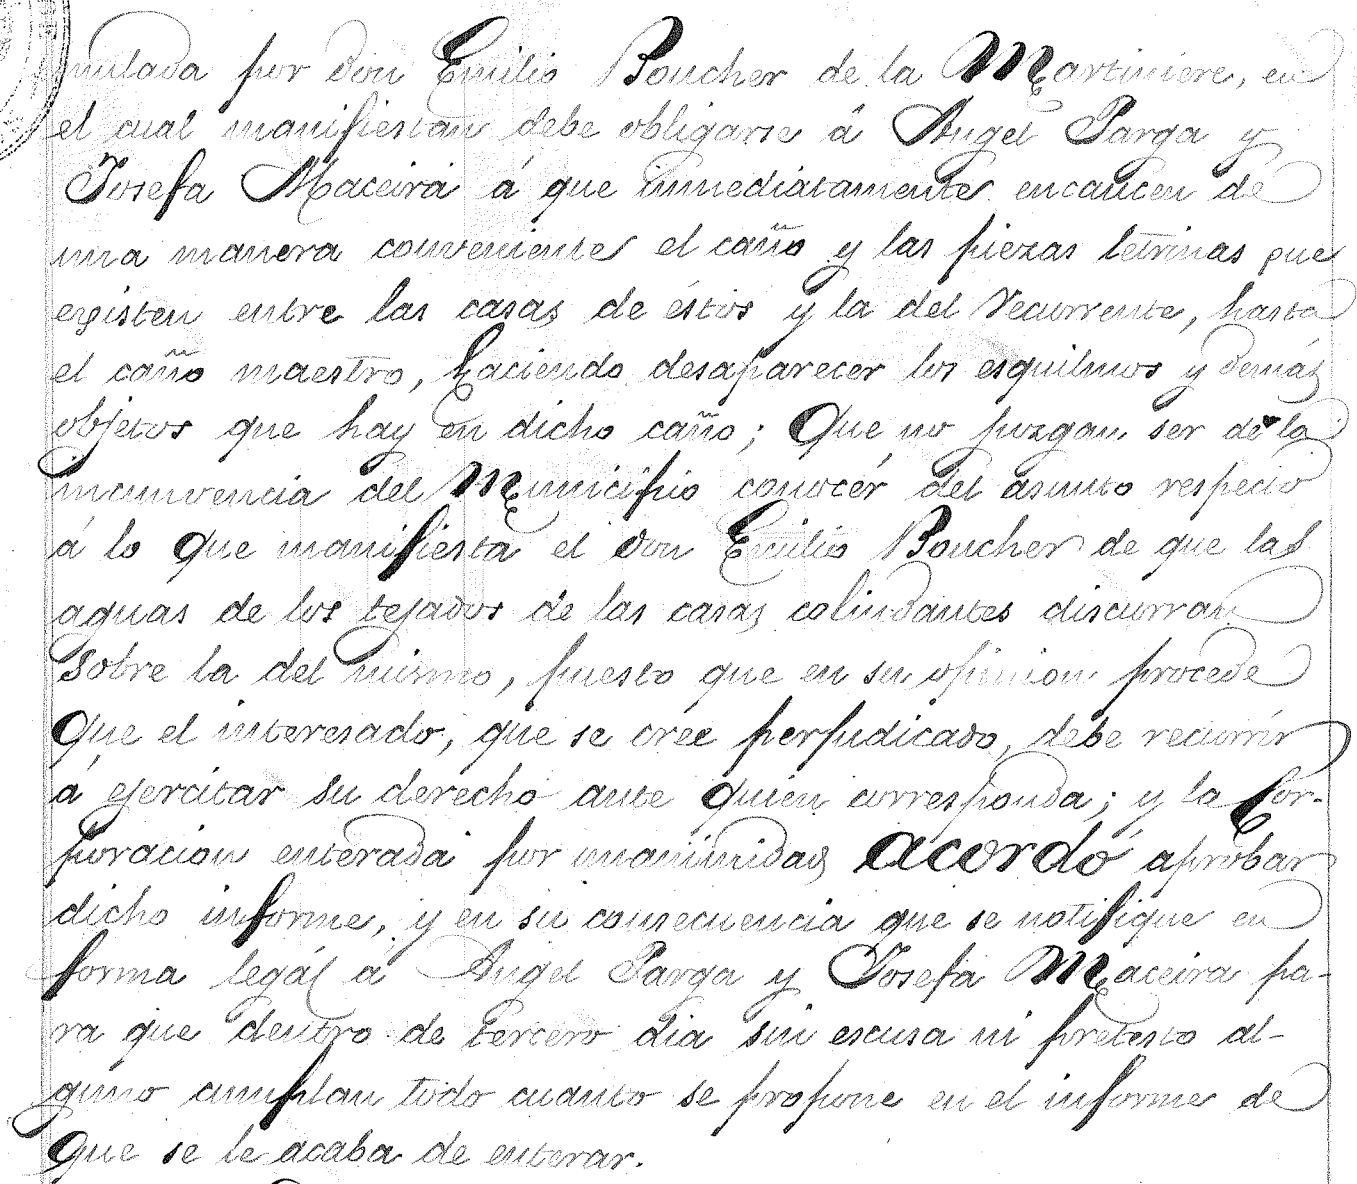 mulada por don Emilio Boucher de la Martiniere, en
el cual manifiestan debe obligarse á Angel Parga y
Josefa Maceira á que inmediatamente encaucen de
una manera conveniente el caño y las piezas letrinas que
existen entre las casas de éstos y la del recurrente, hasta
el caño maestro, haciendo desaparecer los esquilmos y demás
objetos que hay en dicho caño; Que no juzgan ser de la
incunvencia del Municipio conocér del asunto respecto
á lo que manifiesta el don Emilio Boucher de que las
aguas de los tejados de las casas colindantes discurran
sobre la del mismo, puesto que en su opinion procede
que el interesado, que se cree perjudicado, debe recurrir
á ejercitar su derecho ante quien corresponda; y la Cor-
poracion enterada por unanimidad acordó aprobar
dicho informe, y en su consecuencia que se notifique en
forma legál á Angel Parga y Josefa Maceira pa-
ra que dentro de tercero dia sin escusa ni pretesto al-
guno cumplan todo cuanto se propone en el informe de
que se le acaba de enterar.